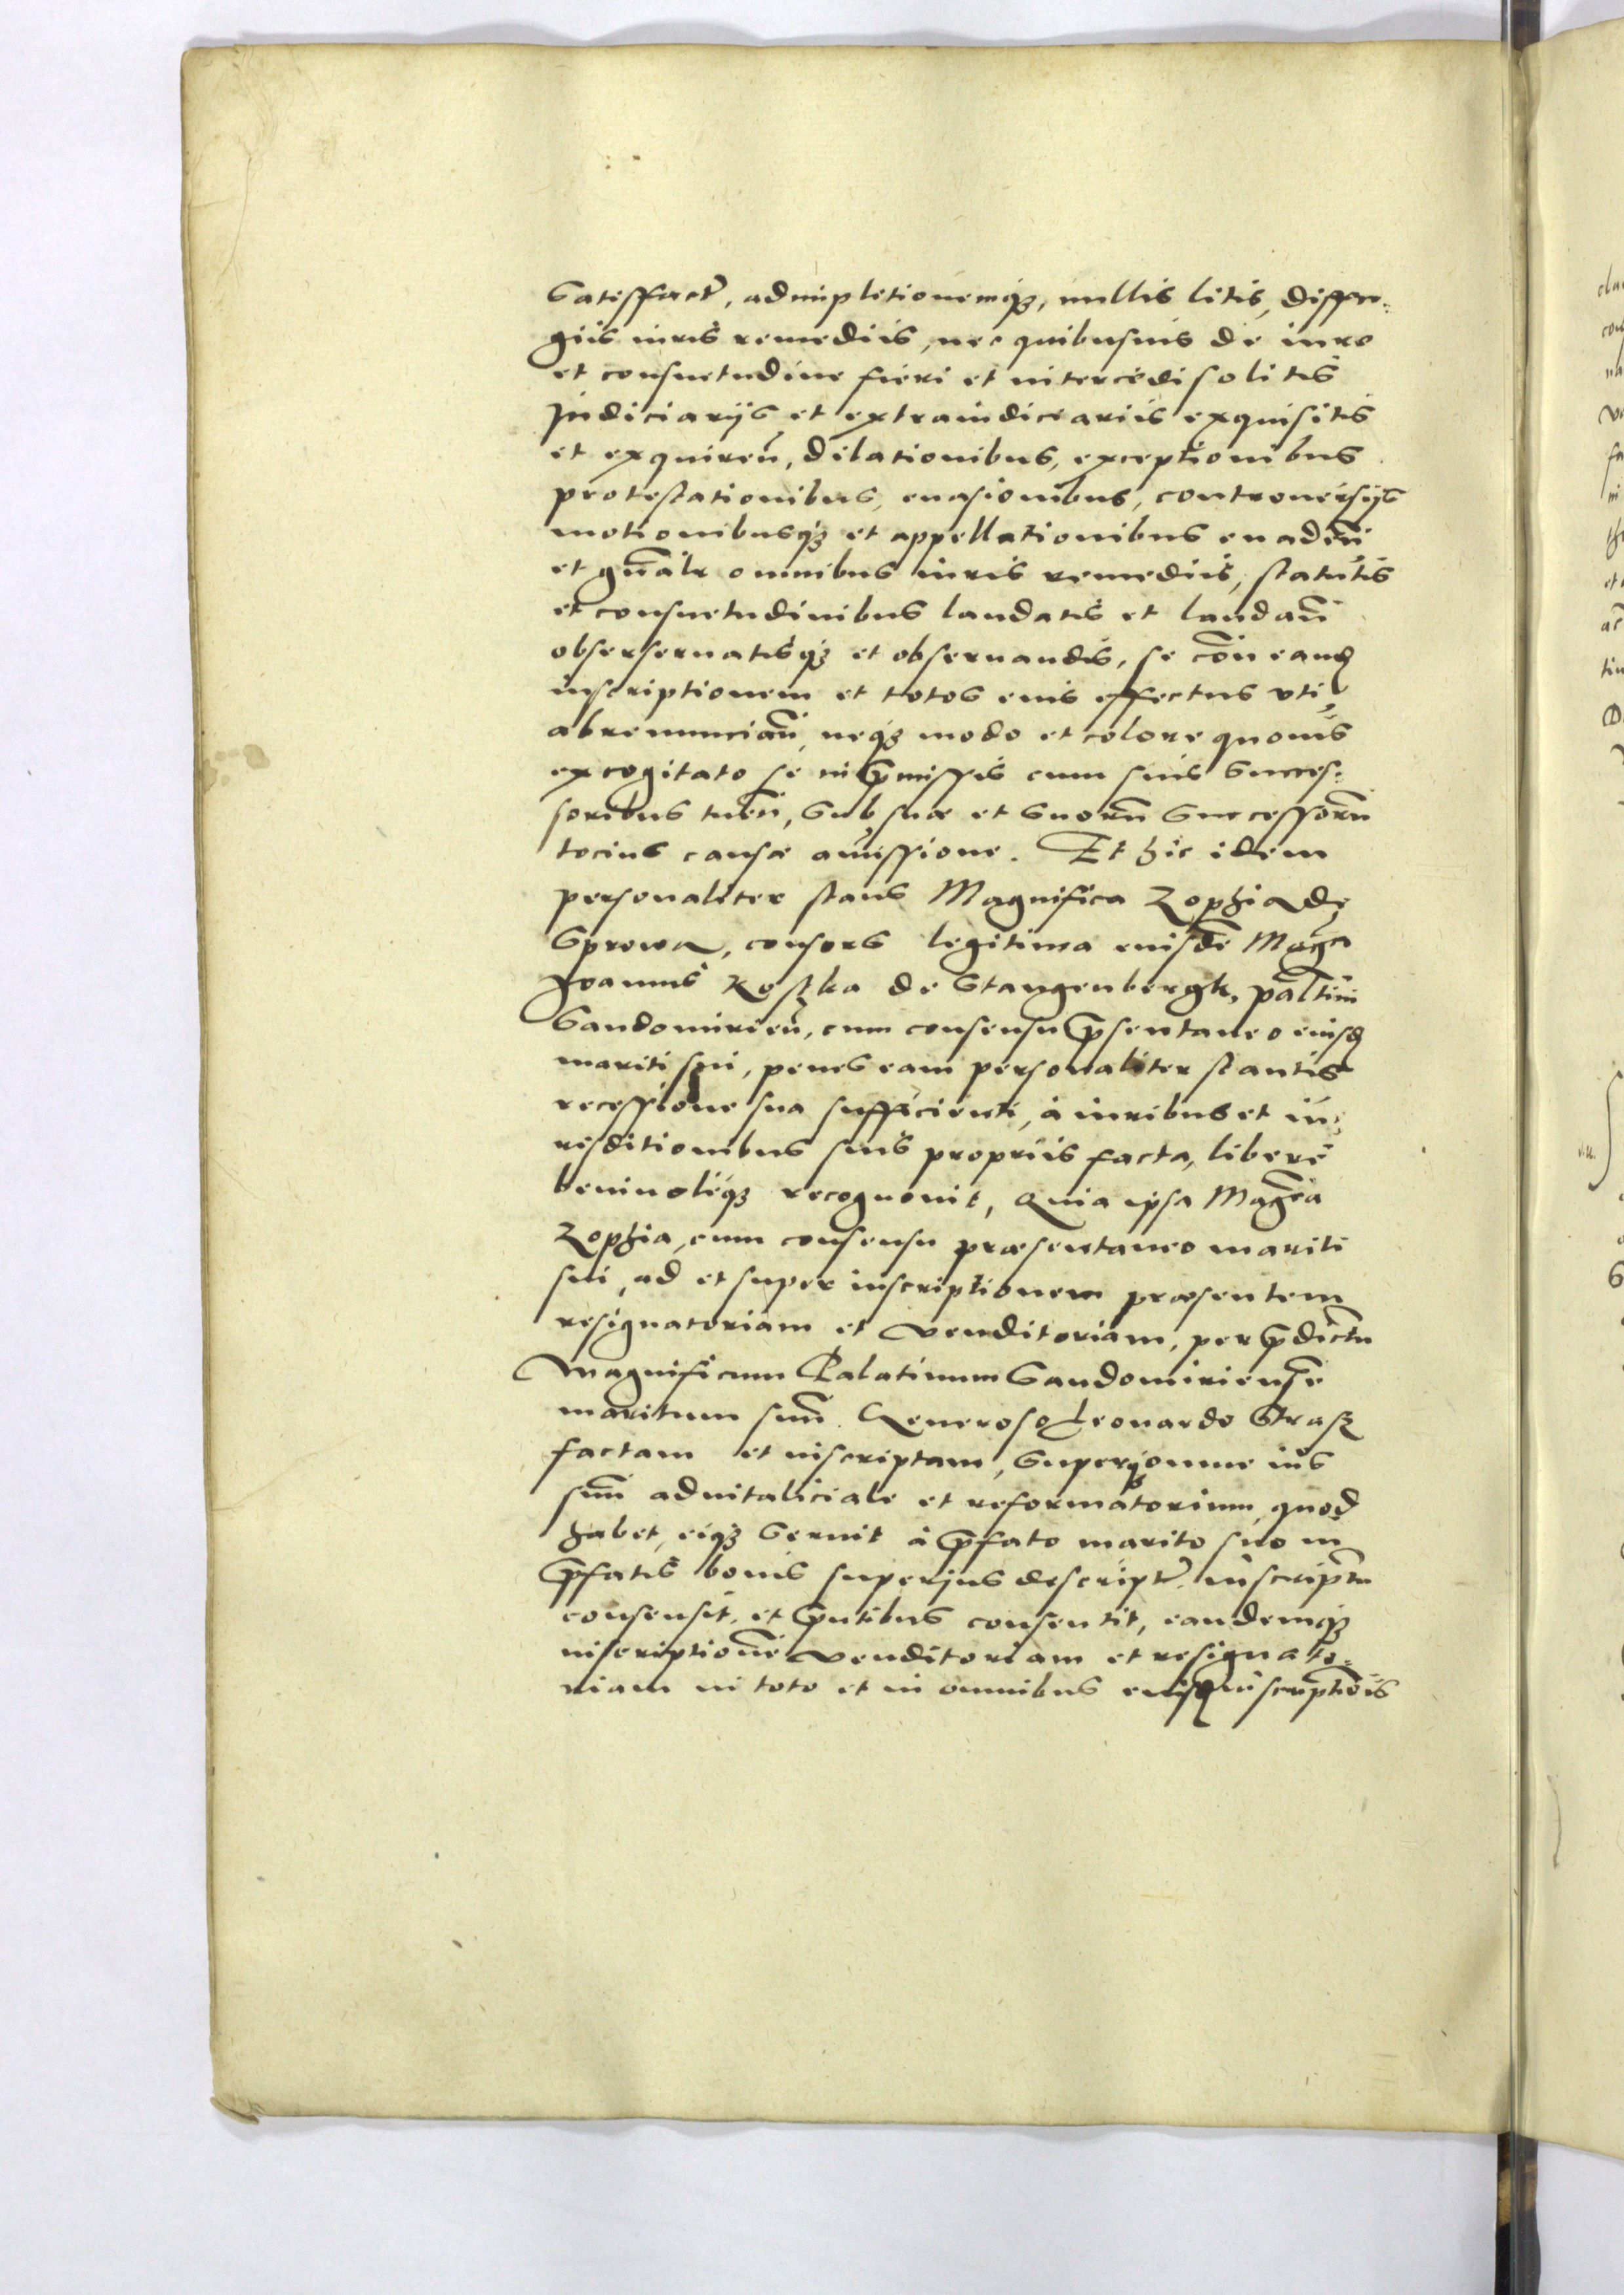 Satisfact, adimpletionemq3, nullis litis, diffu=
giis iuris remediis, nec quibusuis de iure
et consuetudine fieri et intercedi solitis
Judiciarijs et extraiudiciariis exquisitis
et exquiren̄, dilationibus, exceptionibus
protestationibus, euasionibus, controuersijs
motionibusq3 et appellationibus euaden̄
et gn̄alr omnibus iuris remediis, statutis
et consuetudinibus laudatis et laudan̄
obserseruatisq3 et obseruandis, se con̄ eand
inscriptionem et totos eius effectus uti,
abrenuncian̄, neq3 modo et colore quouis
excogitato se in p̄missis cum suis succes=
soribus tuen̄, sub suæ et suorū successorū
tocius causæ amissione. Et hic idem
personaliter stans Magnifica Zophia de
Sprowa, consors legitima eiusdē Mag̅ci
Joannis Kostka de Stangenbergk, paltini
Sandomirien̄, cum consensu p̄sentaneo eiusd
mariti sui, penes eam personaliter stantis
recessione sua sufficienti, à iuribus et iu=
risditionibus suis propriis facta, liberè
beniuoleq3 recognouit, Quia ipsa Mag̅ca
Zophia, cum consensu præsentaneo mariti
sui, ad et super inscriptionem præsentem
resignatoriam et venditoriam, per p̄dictū
Magnificum Palatinum Sandomiriensē
maritum suū. Generoso Leonardo Strasz
factam et inscriptam, superq3 omne ius
suū aduitaliciale et reformatorium, quod
habet, eiq3 seruit à p̄fato marito suo in
p̄fatis bonis superius descript, inscriptū
consensit, et p̄ntibus consentit, eandemq3
inscriptionē venditoriam et resignato=
riam in toto et in omnibus eiusd inscriptiōis